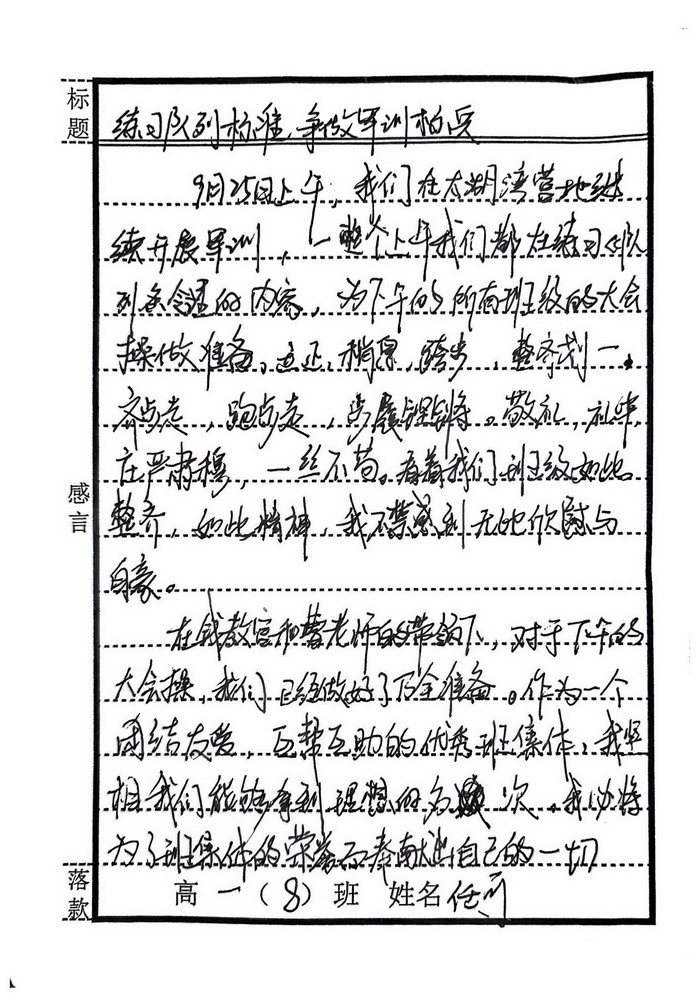 标题
练习队列标准，争做军训标兵
9月25日上午，我们在太湖湾营地继
续开展军训，一整个上午我们都在练习队
列各合适的内容，为下午的所有班级的大会
操做准备。立正，稍息，跨步，整齐划一。
齐步走，跑步走，步履铿锵。敬礼，礼毕，
庄严肃穆，一丝不苟。看着我们班级如此
整齐，如此精神，我不禁感到无比欣慰与
自豪。
感言
在钱教官和曹老师的带领下，对于下午的
大会操，我们已经做好了万全准备。作为一个
团结友爱，互帮互助的优秀班集体，我坚
相我们能够拿到理想的名次，我必将
为了班集体的荣誉而奉献出自己的一切
落款
高一（8）班 姓名 任